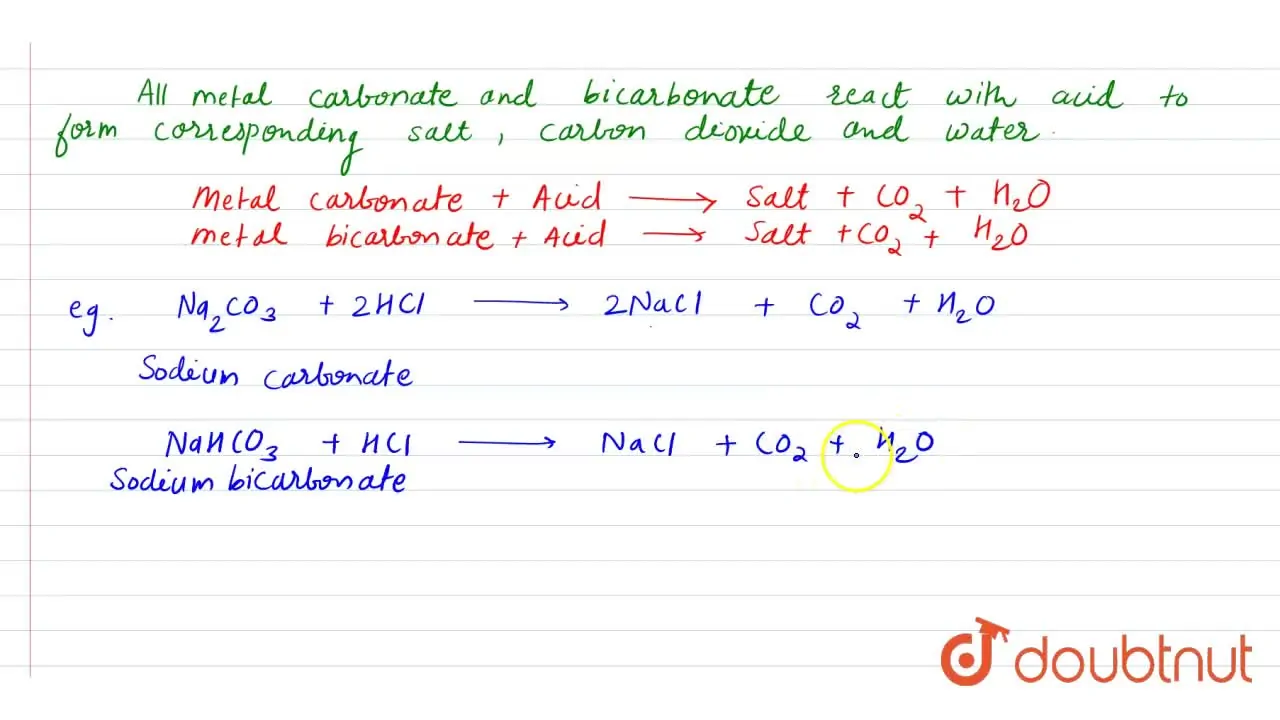 All metal carbonate and bicarbonate react with acid to
form corresponding salt, carbon dioxide and water.
Metal carbonate + Acid ⟶ Salt + CO₂ + H₂O
Metal bicarbonate + Acid ⟶ Salt + CO₂ + H₂O
eg. Na₂CO₃ + 2HCl ⟶ 2NaCl + CO₂ + H₂O
Sodium carbonate
NaHCO₃ + HCl ⟶ NaCl + CO₂ + H₂O
Sodium bicarbonate
doubtnut